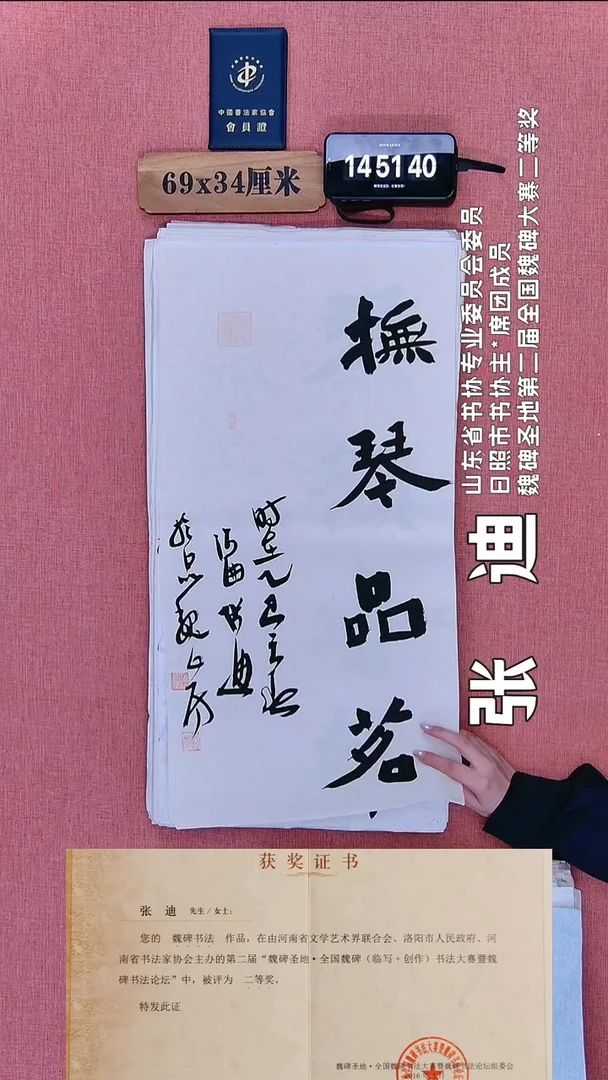 中國書法家協會
會員證
69x34厘米
14 51 40
撫琴品茗
时在乙巳之春
张迪
山东省书协专业委员会委员
日照市书协主*席团成员
魏碑圣地第二届全国魏碑大赛二等奖
张 迪
获奖证书
张 迪 先生/女士:
您的 魏碑书法 作品,在由河南省文学艺术界联合会、洛阳市人民政府、河
南省书法家协会主办的第二届“魏碑圣地·全国魏碑(临写+创作)书法大赛暨魏
碑书法论坛”中,被评为 二等奖。
特发此证
魏碑圣地·全国魏碑书法大赛暨魏碑书法论坛组委会